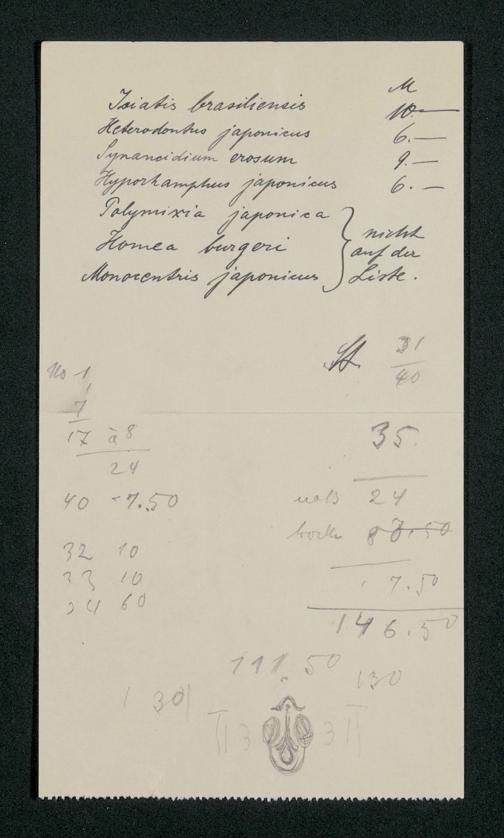 M
Isiatis brasiliensis 10.—
Heterodontus japonicus 6.—
Synancidium erosum 9.—
Hyporhamphus japonicus 6.—
Polymixia japonica
Homea burgeri
Monocentris japonicus
nicht
auf der
Liste.
31
40
No 1
1
7
17 à 8
24
35
40 -7.50
24
80.50
32 10
33 10
24 60
17.50
146.50
111.50
130
130